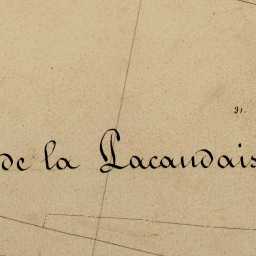 31.
de la Lacaudais